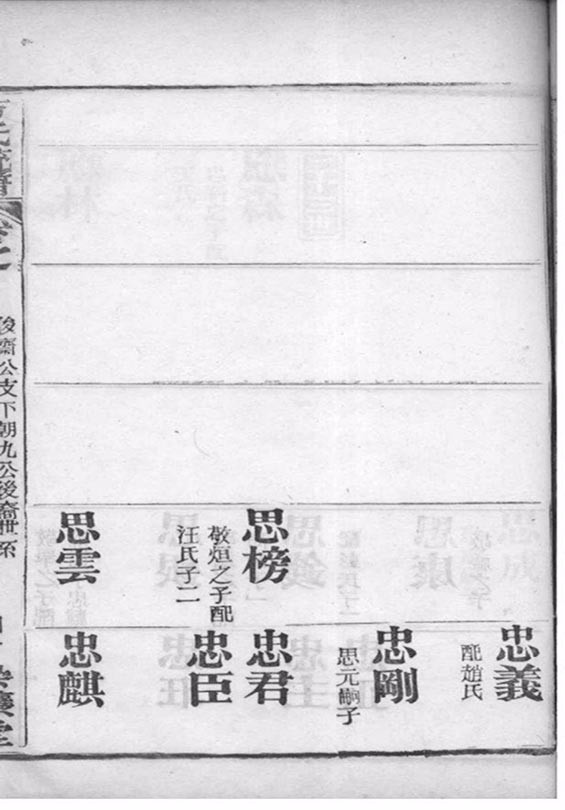 思榜
敬烜之子配
汪氏子二
思雲
忠義
配趙氏
忠剛
思元嗣子
忠君
忠臣
忠麒
卷之
齋公支下朝九公後裔世系